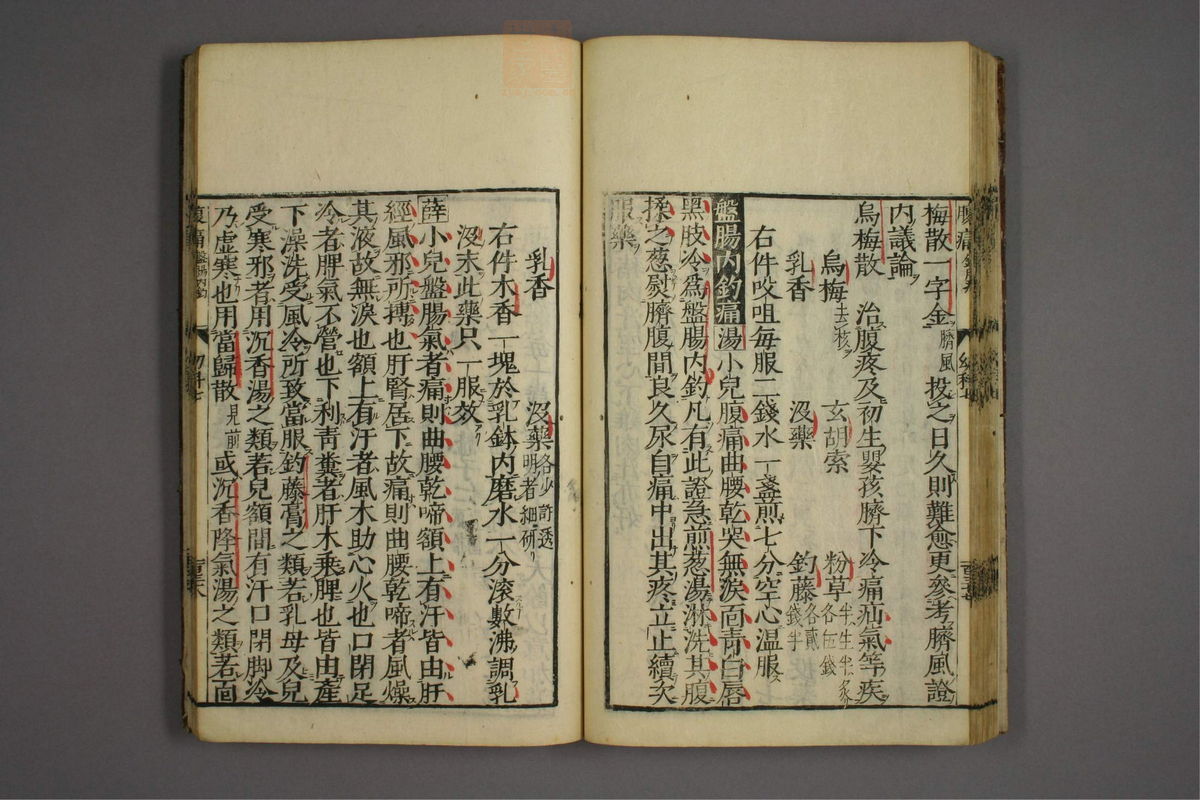 梅散一字金臍風投之日久則難愈更參考臍風證
内議論
烏梅散　治腹疼及初生嬰孩臍下冷痛疝氣等疾
烏梅去核　玄胡索　粉草半生半炙各伍錢
乳香　沒藥　釣藤各貳錢半
右件㕮咀每服二錢水一盞煎七分空心温服
盤腸内釣痛湯小兒腹痛曲腰乾哭無淚面青白唇
黑肢冷爲盤腸内釣凡有此證急煎葱湯淋洗其腹
揉之葱熨臍腹間良久尿自痛中出其疼立止續次
服藥
乳香　沒藥各少許透明者細研
右件木香一塊於乳鉢内磨水一分滾數沸調乳
沒末此藥只一服效
薛小兒盤腸氣者痛則曲腰乾啼額上有汗皆由肝
經風邪所搏也肝腎居下故痛則曲腰乾啼者風燥
其液故無淚也額上有汗者風木助心火也口閉足
冷者脾氣不營也下利青糞者肝木乗脾也皆由產
下澡洗受風冷所致當服釣藤膏之類若乳母及兒
受寒邪者用沉香湯之類若兒額間有汗口閉脚冷
乃虛寒也用當歸散見前或沉香降氣湯之類若面